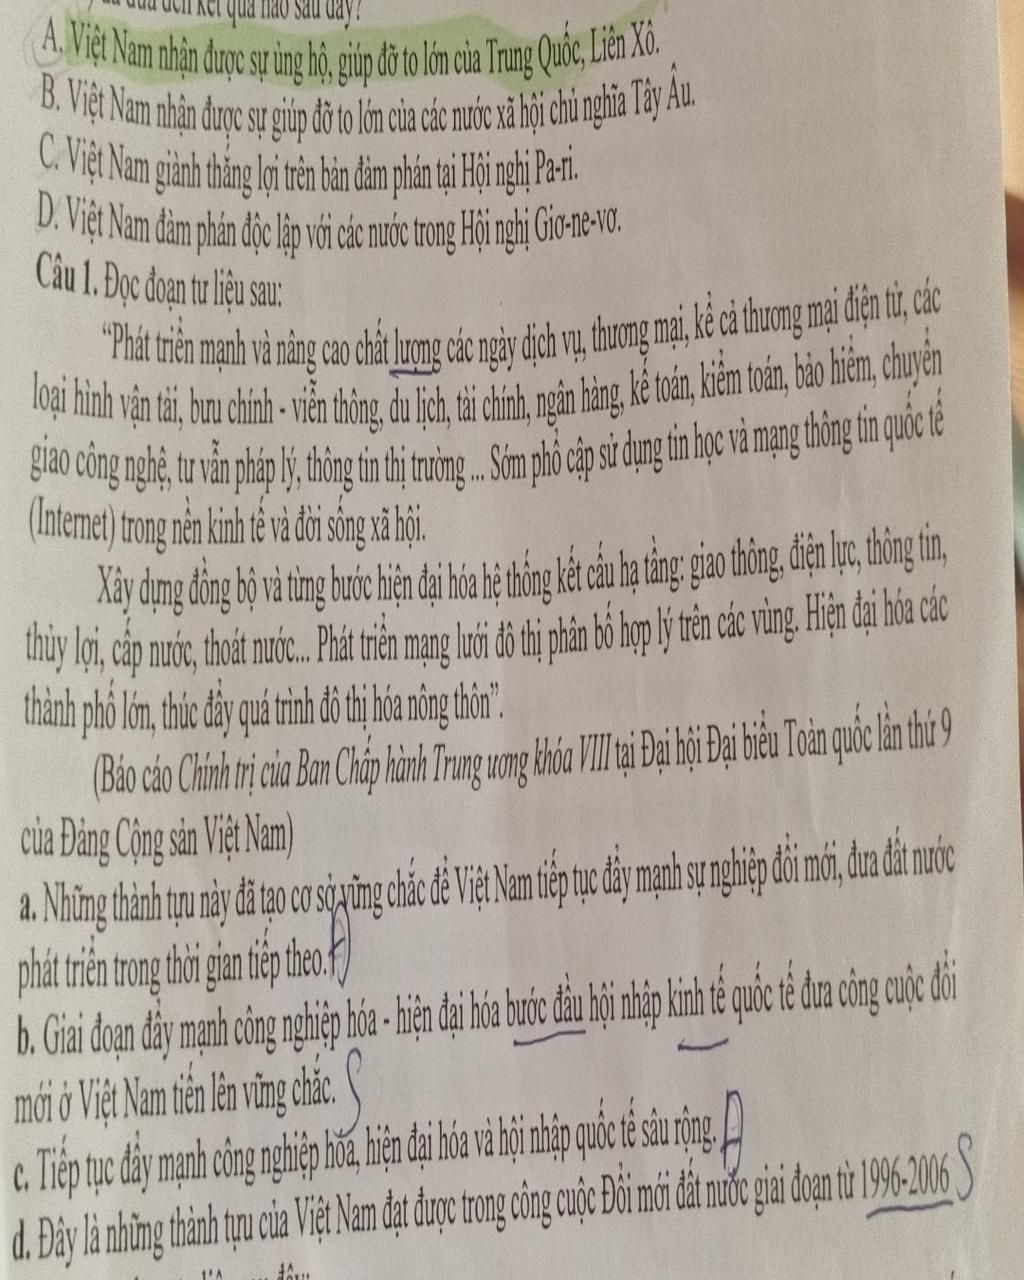 kết quả nào sau đây?
A. Việt Nam nhận được sự ủng hộ, giúp đỡ to lớn của Trung Quốc, Liên Xô.
B. Việt Nam nhận được sự giúp đỡ to lớn của các nước xã hội chủ nghĩa Tây Âu.
C. Việt Nam giành thắng lợi trên bàn đàm phán tại Hội nghị Pa-ri.
D. Việt Nam đàm phán độc lập với các nước trong Hội nghị Giơ-ne-vơ.
Câu 1. Đọc đoạn tư liệu sau:
“Phát triển mạnh và nâng cao chất lượng các ngày dịch vụ, thương mại, kể cả thương mại điện tử, các
loại hình vận tải, bưu chính - viễn thông, du lịch, tài chính, ngân hàng, kế toán, kiểm toán, bảo hiểm, chuyển
giao công nghệ, tư vấn pháp lý, thông tin thị trường ... Sớm phổ cập sử dụng tin học và mạng thông tin quốc tế
(Internet) trong nền kinh tế và đời sống xã hội.
Xây dựng đồng bộ và từng bước hiện đại hóa hệ thống kết cấu hạ tầng: giao thông, điện lực, thông tin,
thủy lợi, cấp nước, thoát nước... Phát triển mạng lưới đô thị phân bố hợp lý trên các vùng. Hiện đại hóa các
thành phố lớn, thúc đẩy quá trình đô thị hóa nông thôn”.
(Báo cáo Chính trị của Ban Chấp hành Trung ương khóa VIII tại Đại hội Đại biểu Toàn quốc lần thứ 9
của Đảng Cộng sản Việt Nam)
a. Những thành tựu này đã tạo cơ sở vững chắc để Việt Nam tiếp tục đẩy mạnh sự nghiệp đổi mới, đưa đất nước
phát triển trong thời gian tiếp theo. Đ
b. Giai đoạn đẩy mạnh công nghiệp hóa - hiện đại hóa bước đầu hội nhập kinh tế quốc tế đưa công cuộc đổi
mới ở Việt Nam tiến lên vững chắc. S
c. Tiếp tục đẩy mạnh công nghiệp hóa, hiện đại hóa và hội nhập quốc tế sâu rộng. Đ
d. Đây là những thành tựu của Việt Nam đạt được trong công cuộc Đổi mới đất nước giai đoạn từ 1996-2006 S